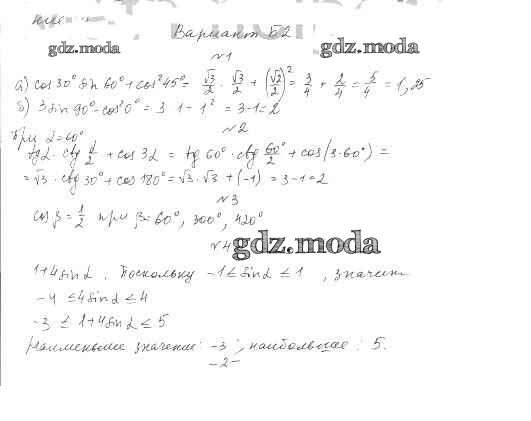 Вариант Б2
gdz.moda gdz.moda
№1
а) cos 30° sin 60° + cos² 45° = √3/2 · √3/2 + (√2/2)² = 3/4 + 2/4 = 5/4 = 1,25
б) 3 sin 90° - cos² 0° = 3 · 1 - 1² = 3-1=2
№2
При α=60°
tg α · ctg α/2 + cos 3α = tg 60° · ctg 60°/2 + cos(3·60°) =
= √3 · ctg 30° + cos 180° = √3 · √3 + (-1) = 3-1=2
№3
cos β = 1/2 при β=60°, 300°, 420°
№4
gdz.moda
1+4sin α. Поскольку -1 ≤ sin α ≤ 1, значит
-4 ≤ 4sin α ≤ 4
-3 ≤ 1+4sin α ≤ 5
Наименьшее значение: -3; наибольшее: 5.
-2-